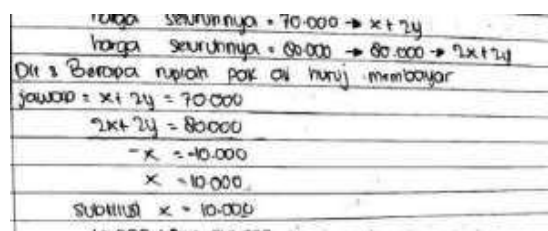 harga seluruhnya = 70.000 → x + 2y
harga seluruhnya = 80.000 → 80.000 → 2x + 2y
Dit : Berapa rupiah pak harus membayar
jawab = x + 2y = 70.000
2x + 2y = 80.000
-x = -10.000
x = 10.000
subtitusi x = 10.000